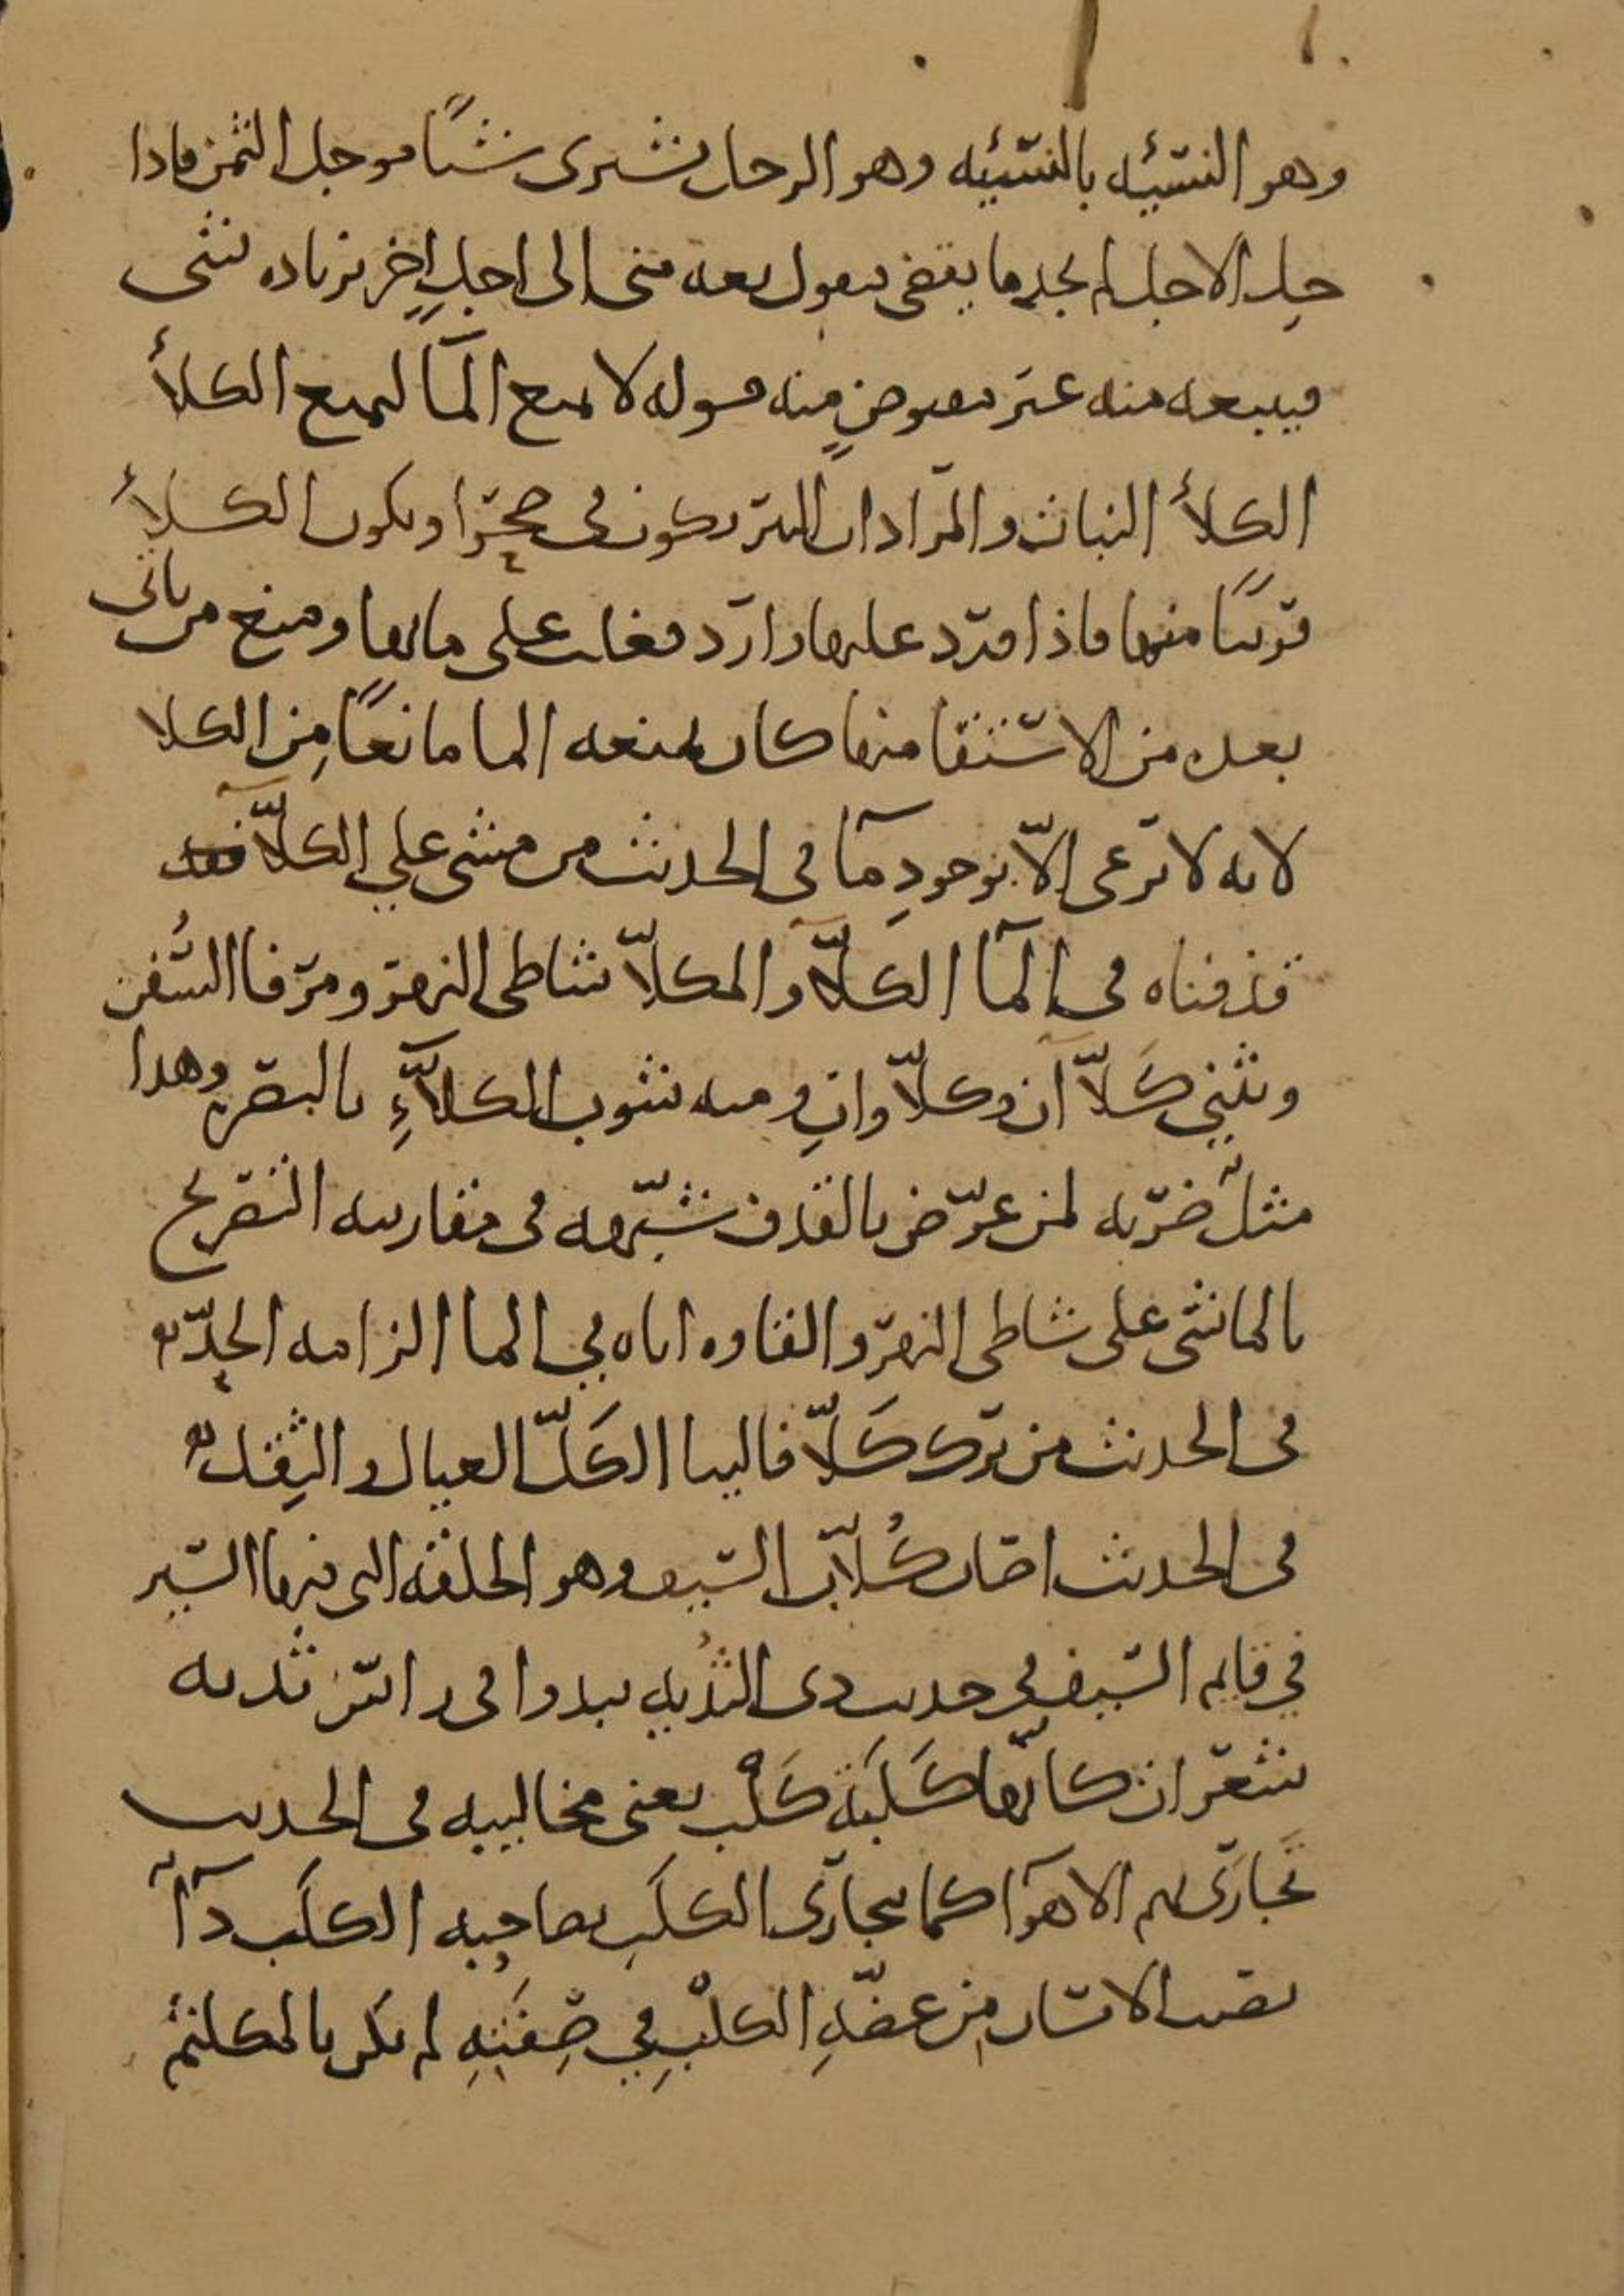 وهو النسيئه بالنسيئه وهو الرجل يشترى شيئًا موجل الثمن فاذا
حل الاجل لم يجد ما يقضى فيقول بعه منى الى اجلٍ اخر بزياده شى
فيبيعه منه غير مقبوضٍ منه قوله لا يمنع المآ ليمنع الكلأ
الكلأ النبات والمراد ان البئر تكون فى صحرا ويكون الكلأ
قريبًا منها فاذا ورد عليها وارد فغلب على مائها ومنع من ياتى
بعده من الاستقا منها كان بمنعه الما مانعًا مِن الكلا
لانه لا ترعى الّا بوجودِ مآ فى الحديث من مشى على الكلّآ
قذفناه فى المآ الكلّآ والمكلّا شاطى النهر ومرفا السُفن
ويثنى كَلّاآن وكلّاوانِ ومنه سوق الكلّآءِ بالبصره وهذا
مثلٌ ضربه لمن عرّض بالقذف شبّهه فى مقاربته التصريح
بالماشى على شاطى النهر والقاوه اياه فى الما الزامه الحدّ
فى الحديث من ترك كَلّا فالينا الكَلّ العيال والثِقل
فى الحديث اصاب كُلّاب السيف وهو الحلقه التى فيها السير
في قايم السيف في حديث ذى الثُديه يبدوا فى راس ثديه
شعرات كانّها كَلَبَة كَلْب يعنى مخاليبه فى الحديث
تَجارَى بهم الاهوآ كما يتجارَى الكلَب بصاحِبه الكلَب دآءٌ
يصيب الانسان مِن عضّهِ الكلْبِ في صِفَتِهِ لم يكن بالمكلثم